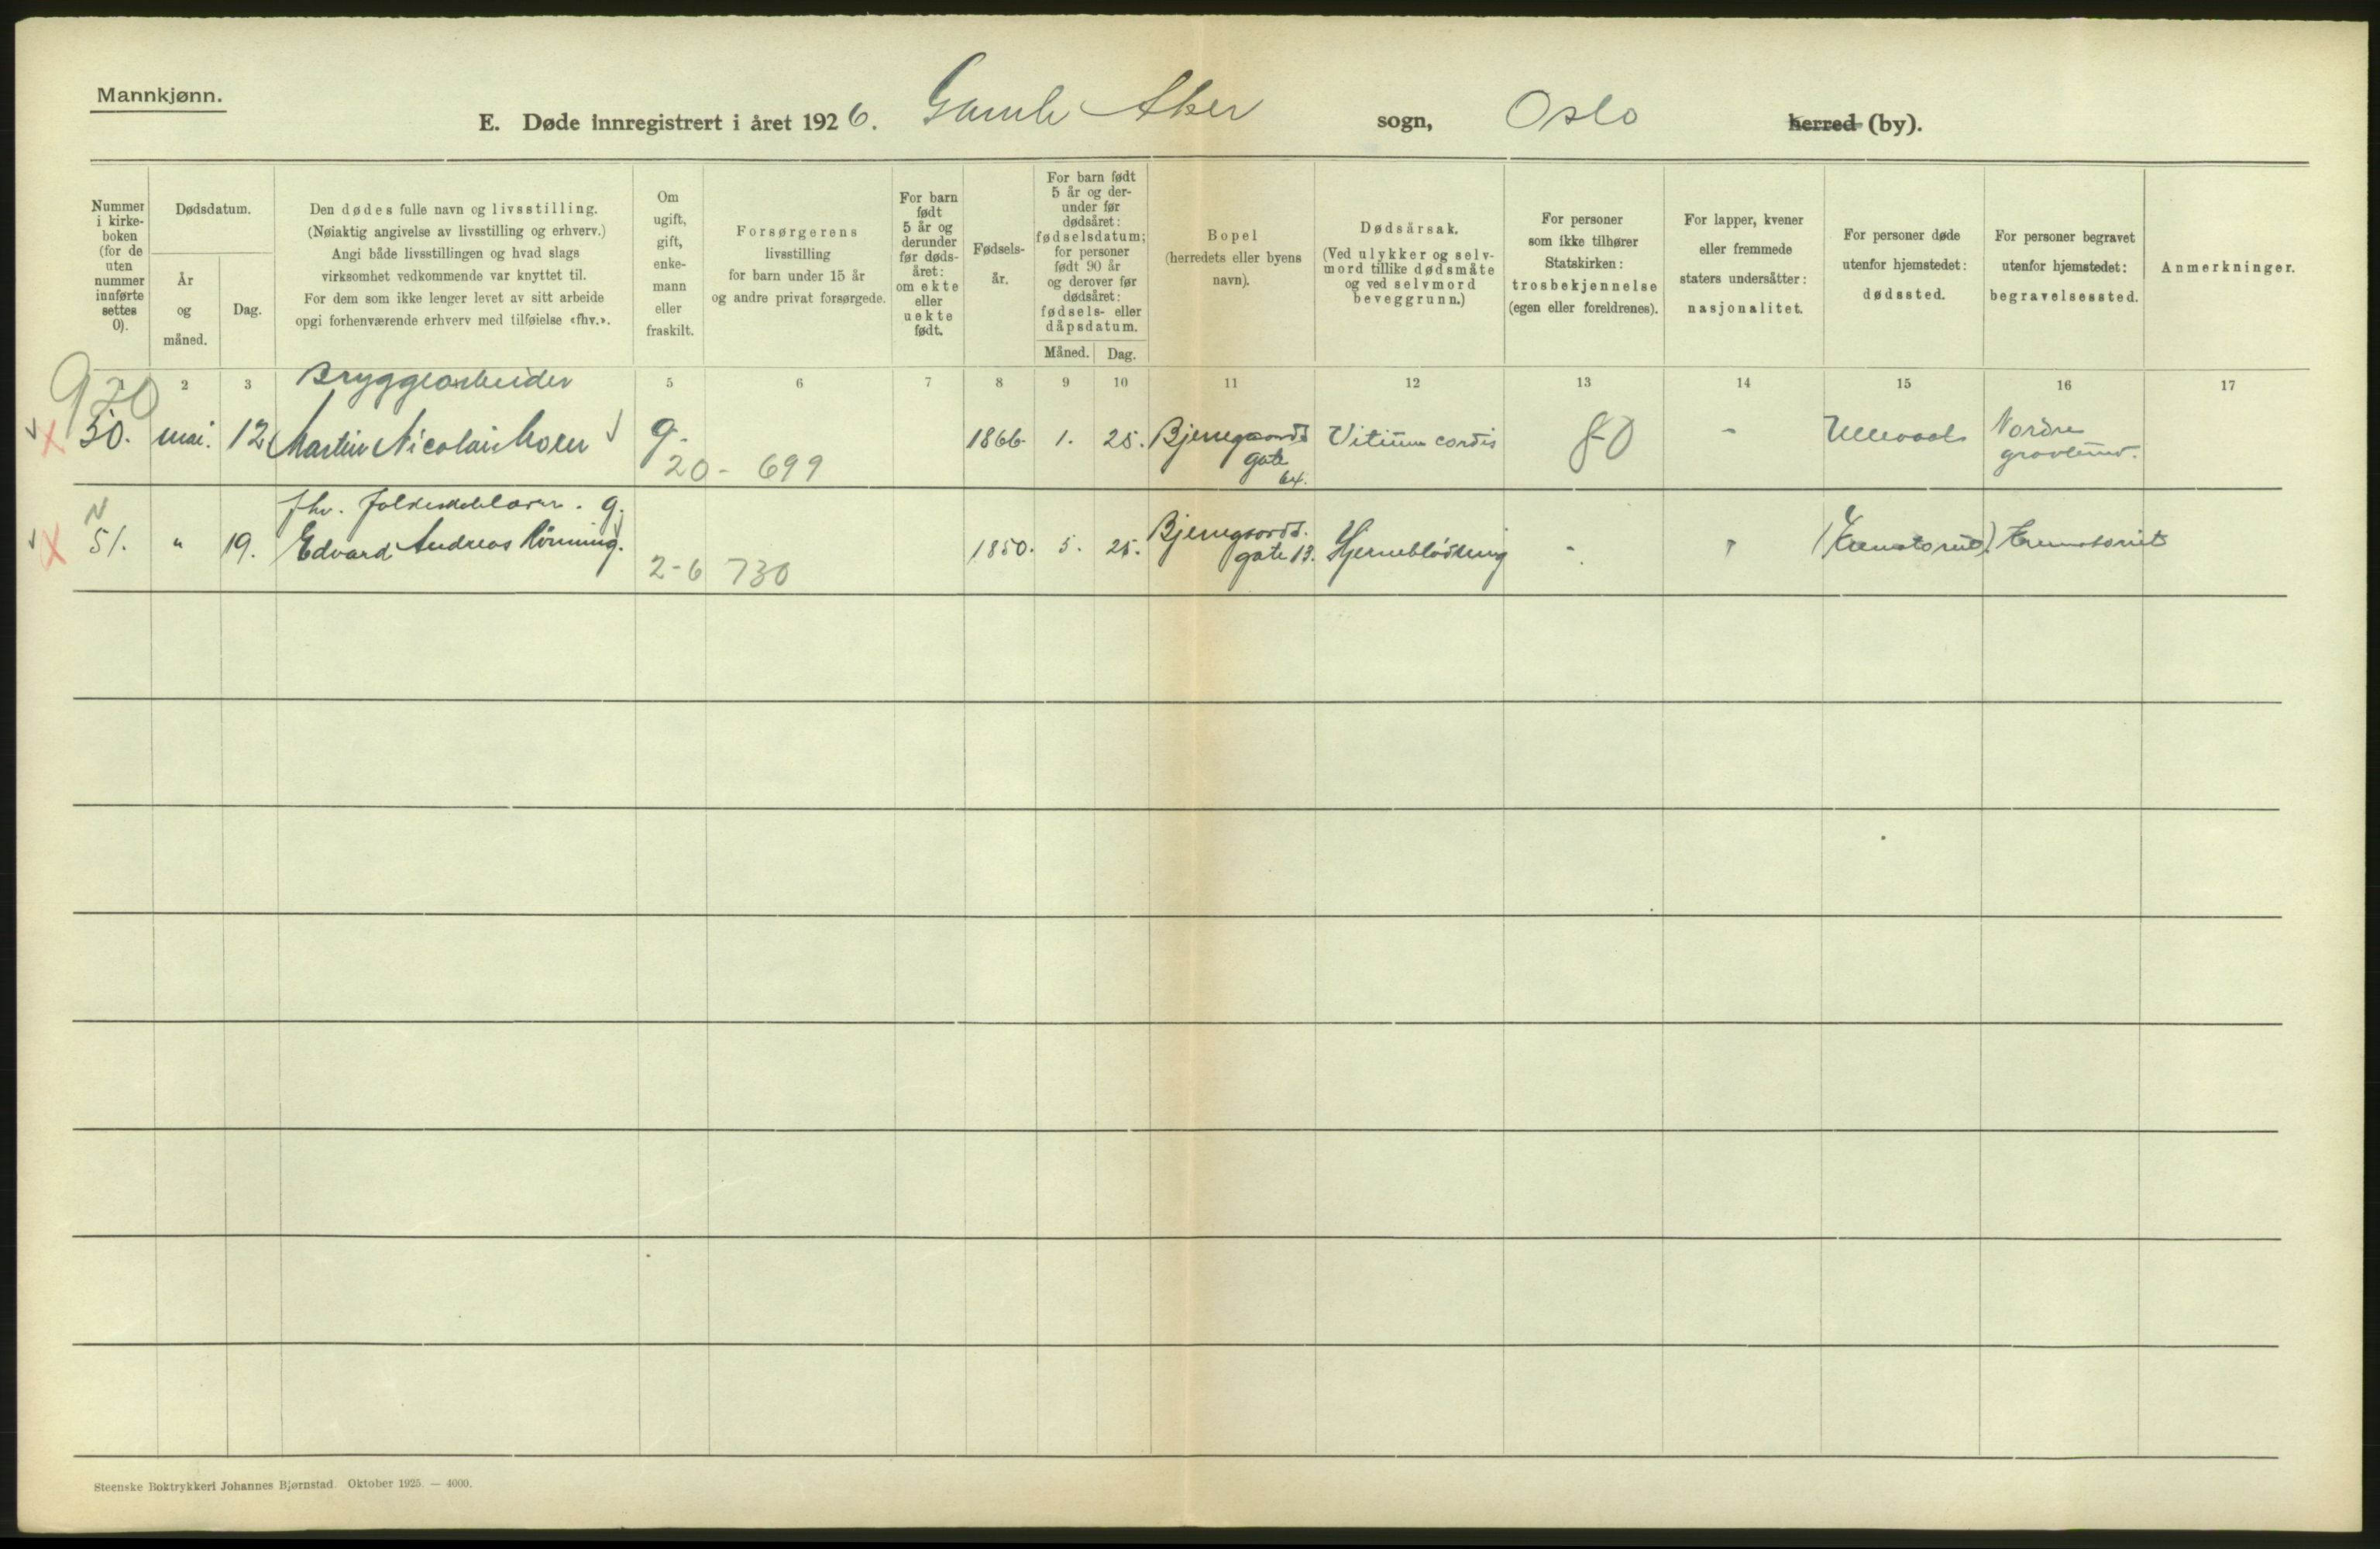 Mannkjønn.
E. Døde innregistrert i året 1926. Gamle Aker sogn, Oslo herred (by).
Nummer i kirke-boken (for de uten nummer innførte settes 0).
Dødsdatum.
År og måned.
Dag.
Den dødes fulle navn og livsstilling.
(Nøiaktig angivelse av livsstilling og erhverv.)
Angi både livsstillingen og hvad slags
virksomhet vedkommende var knyttet til.
For dem som ikke lenger levet av sitt arbeide
opgi forhenværende erhverv med tilføielse «fhv.».
Om ugift, gift, enke-mann eller fraskilt.
Forsørgerens
livsstilling
for barn under 15 år
og andre privat forsørgede.
For barn født 5 år og derunder før døds-året: om ekte eller uekte født.
Fødsels-år.
For barn født 5 år og der-under før dødsåret: fødselsdatum; for personer født 90 år og derover før dødsåret: fødsels- eller dåpsdatum.
Måned. Dag.
Bopel
(herredets eller byens
navn).
Dødsårsak.
(Ved ulykker og selv-
mord tillike dødsmåte
og ved selvmord
beveggrunn.)
For personer
som ikke tilhører
Statskirken:
trosbekjennelse
(egen eller foreldrenes).
For lapper, kvener
eller fremmede
staters undersåtter:
nasjonalitet.
For personer døde
utenfor hjemstedet:
dødssted.
For personer begravet
utenfor hjemstedet:
begravelsessted.
Anmerkninger.
2 3 5 6 7 8 9 10 11 12 13 14 15 16 17
970
Bryggearbeider
50. mai. 12 Martin Nicolai Moen g. 1866 1. 25. Bjerregaards gate 64. Vitium cordis 80 - Ullevaal Nordre gravlund.
20 - 699
N
fhv. g.
51. " 19. Edvard Andreas Rønning. 1850. 5. 25. Bjerregaards gate 13. Hjerneblødning - (Krematoriet) Krematoriet
2-6 730
Steenske Boktrykkeri Johannes Bjørnstad. Oktober 1925. — 4000.